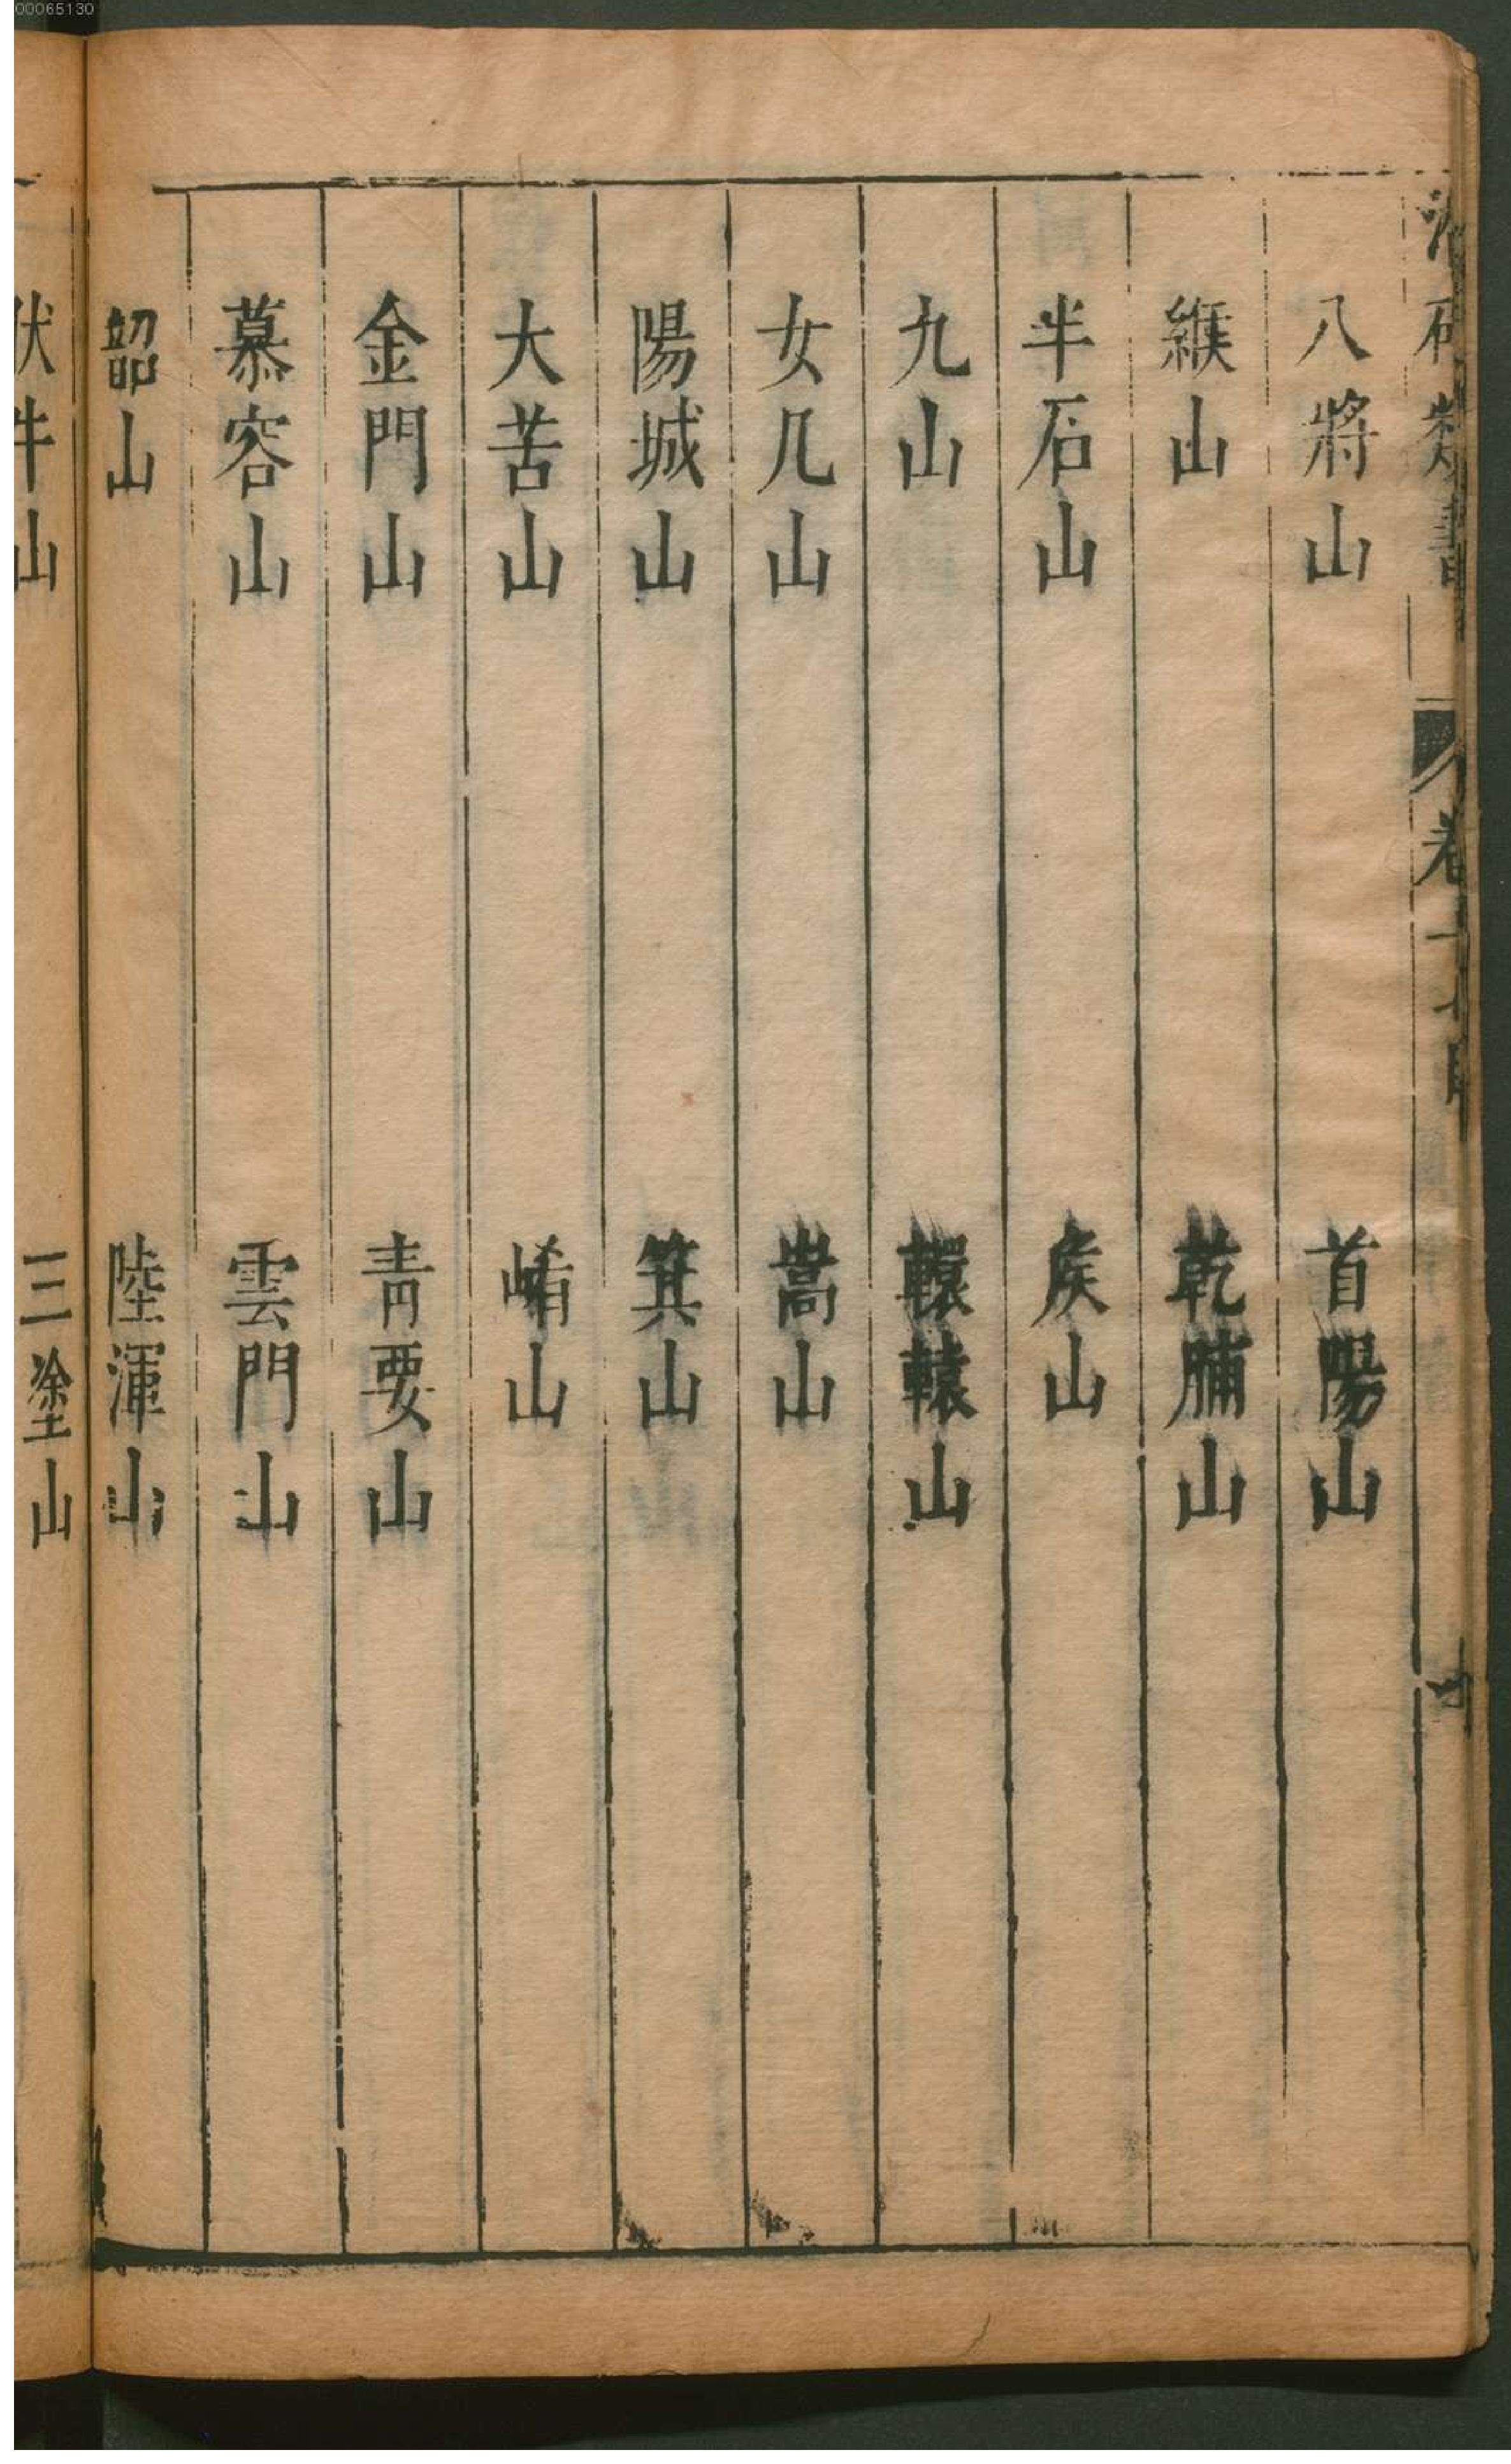 00065130
八將山 首陽山
緱山 乾脯山
半石山 矦山
九山 轘轅山
女几山 嵩山
陽城山 箕山
大苦山 崤山
金門山 青要山
慕容山 雲門山
韶山 陸渾山
伏牛山 三塗山